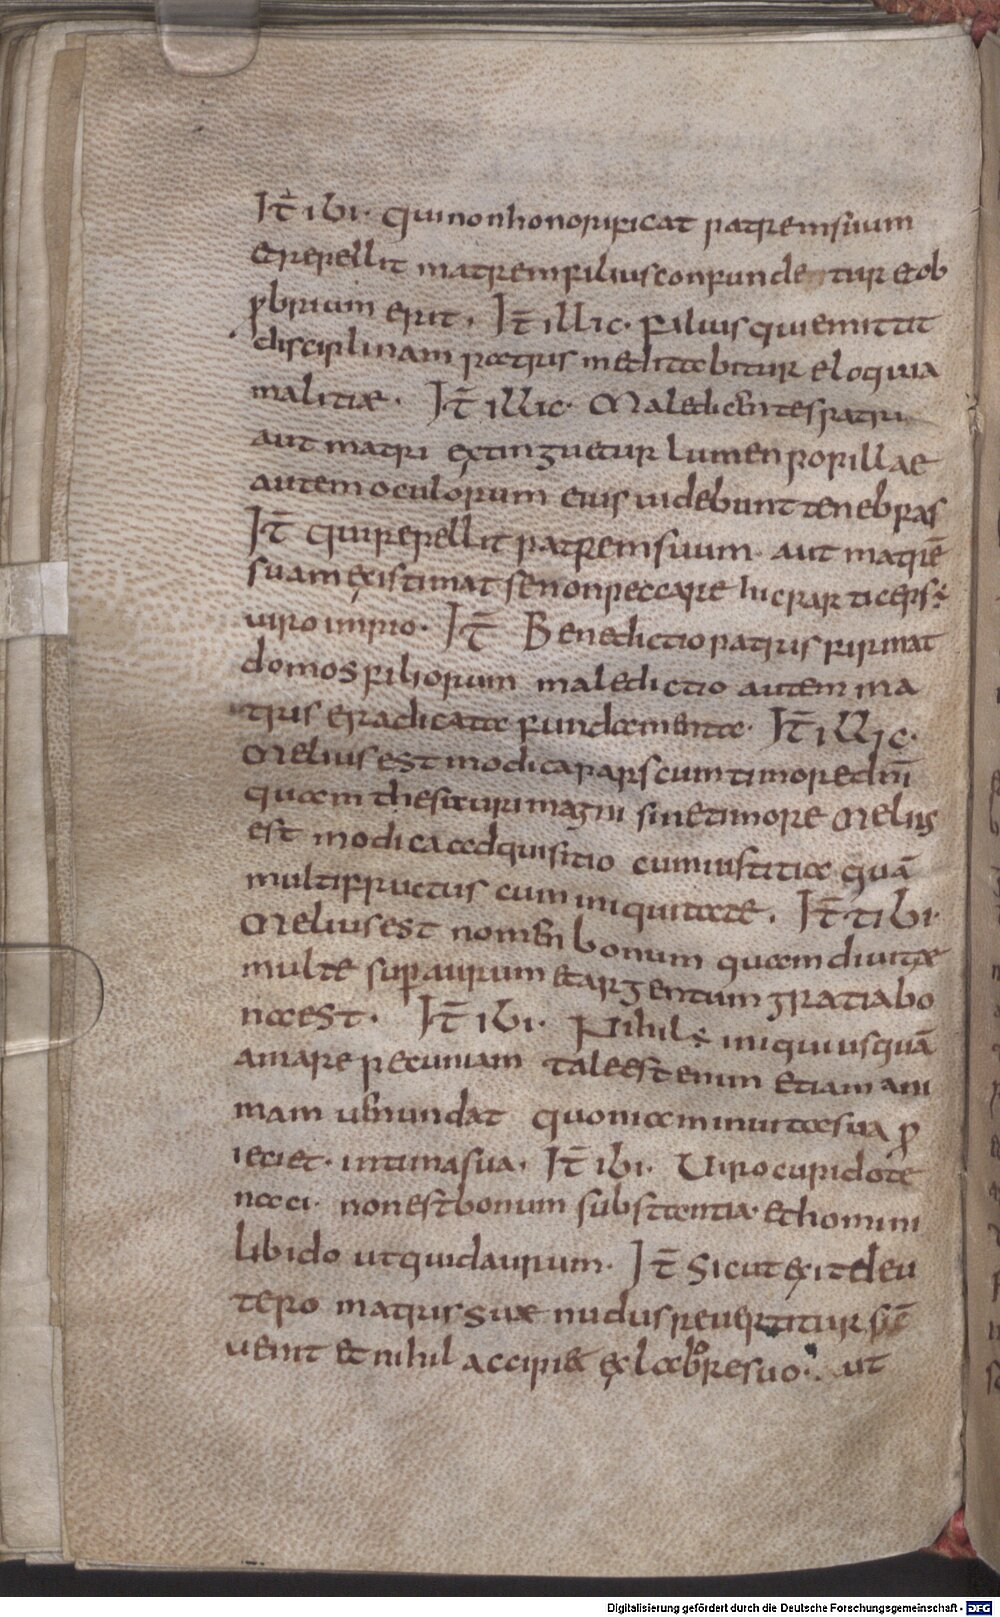 It̄ ibi· qui non honorificat patrem suum
et repellit matrem filius confunde tur et ob
ꝓbrium erit· It̄ illic· filius qui emittit
disciplinam patris meditabitur eloquia
malitiae· It̄ illic· Maledicentes patri
aut matri extinguetur lumen popillae
autem oculorum eius uidebunt tenebras
It̄ qui repellit patrem suum· aut matrē
suam existimat se non peccare hic particeps ÷
uiro impio· It̄ Benedictio patris firmat
domos filiorum maledictio autem ma
tris eradicata fundamenta· It̄ illic·
Melius est modica pars cum timore dn̄i
quam thesauri magni sine timore Melius
est modica adquisitio cum iustitia quā
multi fructus cum iniquitate· It̄ tibi·
Melius est nomen bonum quam diuitae
multe sup aurum et argentum gratia bo
na est· It̄ ibi· Nihil ÷ iniquius quā
amare pecuniam tale est enim etiam ani
mam uenundat quoniam in uita sua ꝓ
ieciet· intima sua· It̄ ibi· Uiro cupido te
naci· non est bonum substantia· et homini
libido ut quid aurum· It̄ Sicut exit de eu
tero matris suae nudus reuertitur sic̄
uenit et nihil accipiet ex labore suo· ut
Digitalisierung gefördert durch die Deutsche Forschungsgemeinschaft - DFG